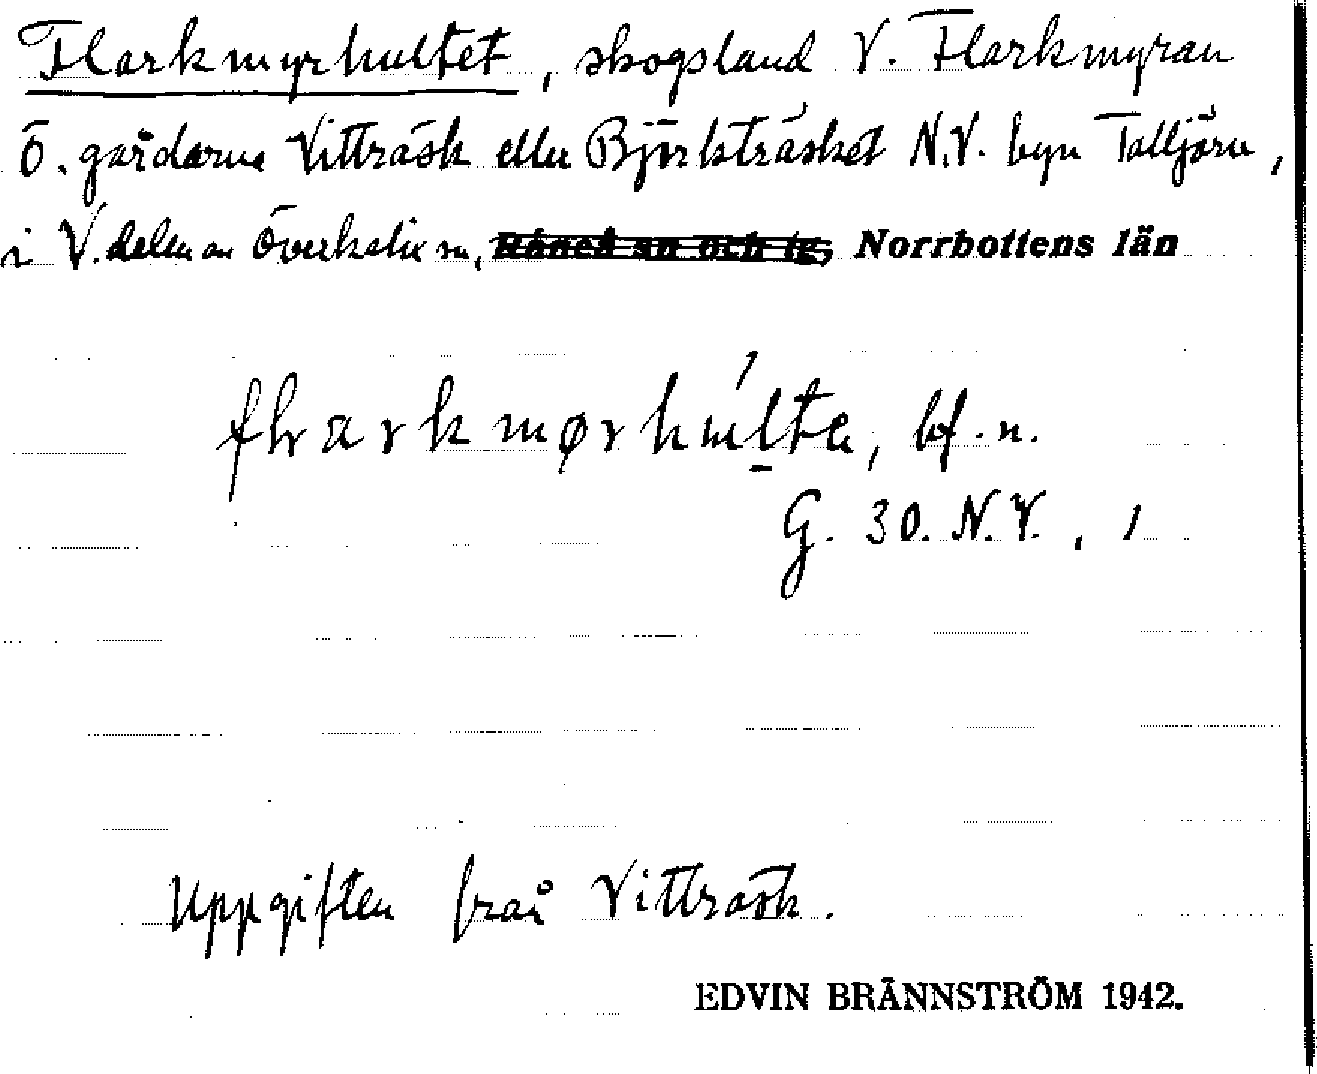 Flarkmyrhultet, skogsland V. Flarkmyran
Ö. gårdarna Vitträsk eller Björkträsket N.V. byn Talljärv,
i V. delen av Överkalix sn, Råneå sn och tg, Norrbottens län
bf. n.
G. 30. N.V., 1
Uppgiften från Vitträsk.
EDVIN BRÄNNSTRÖM 1942.